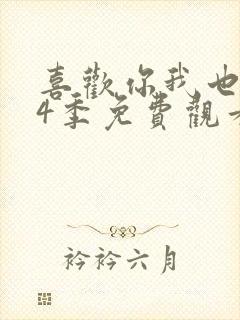 喜歡你我也
4季免費觀
衿衿六月